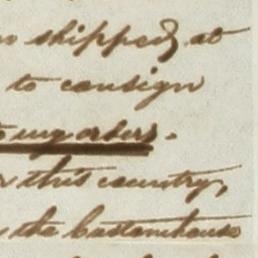 shipped at
to consign
my orders.
this country,
the Customhouse